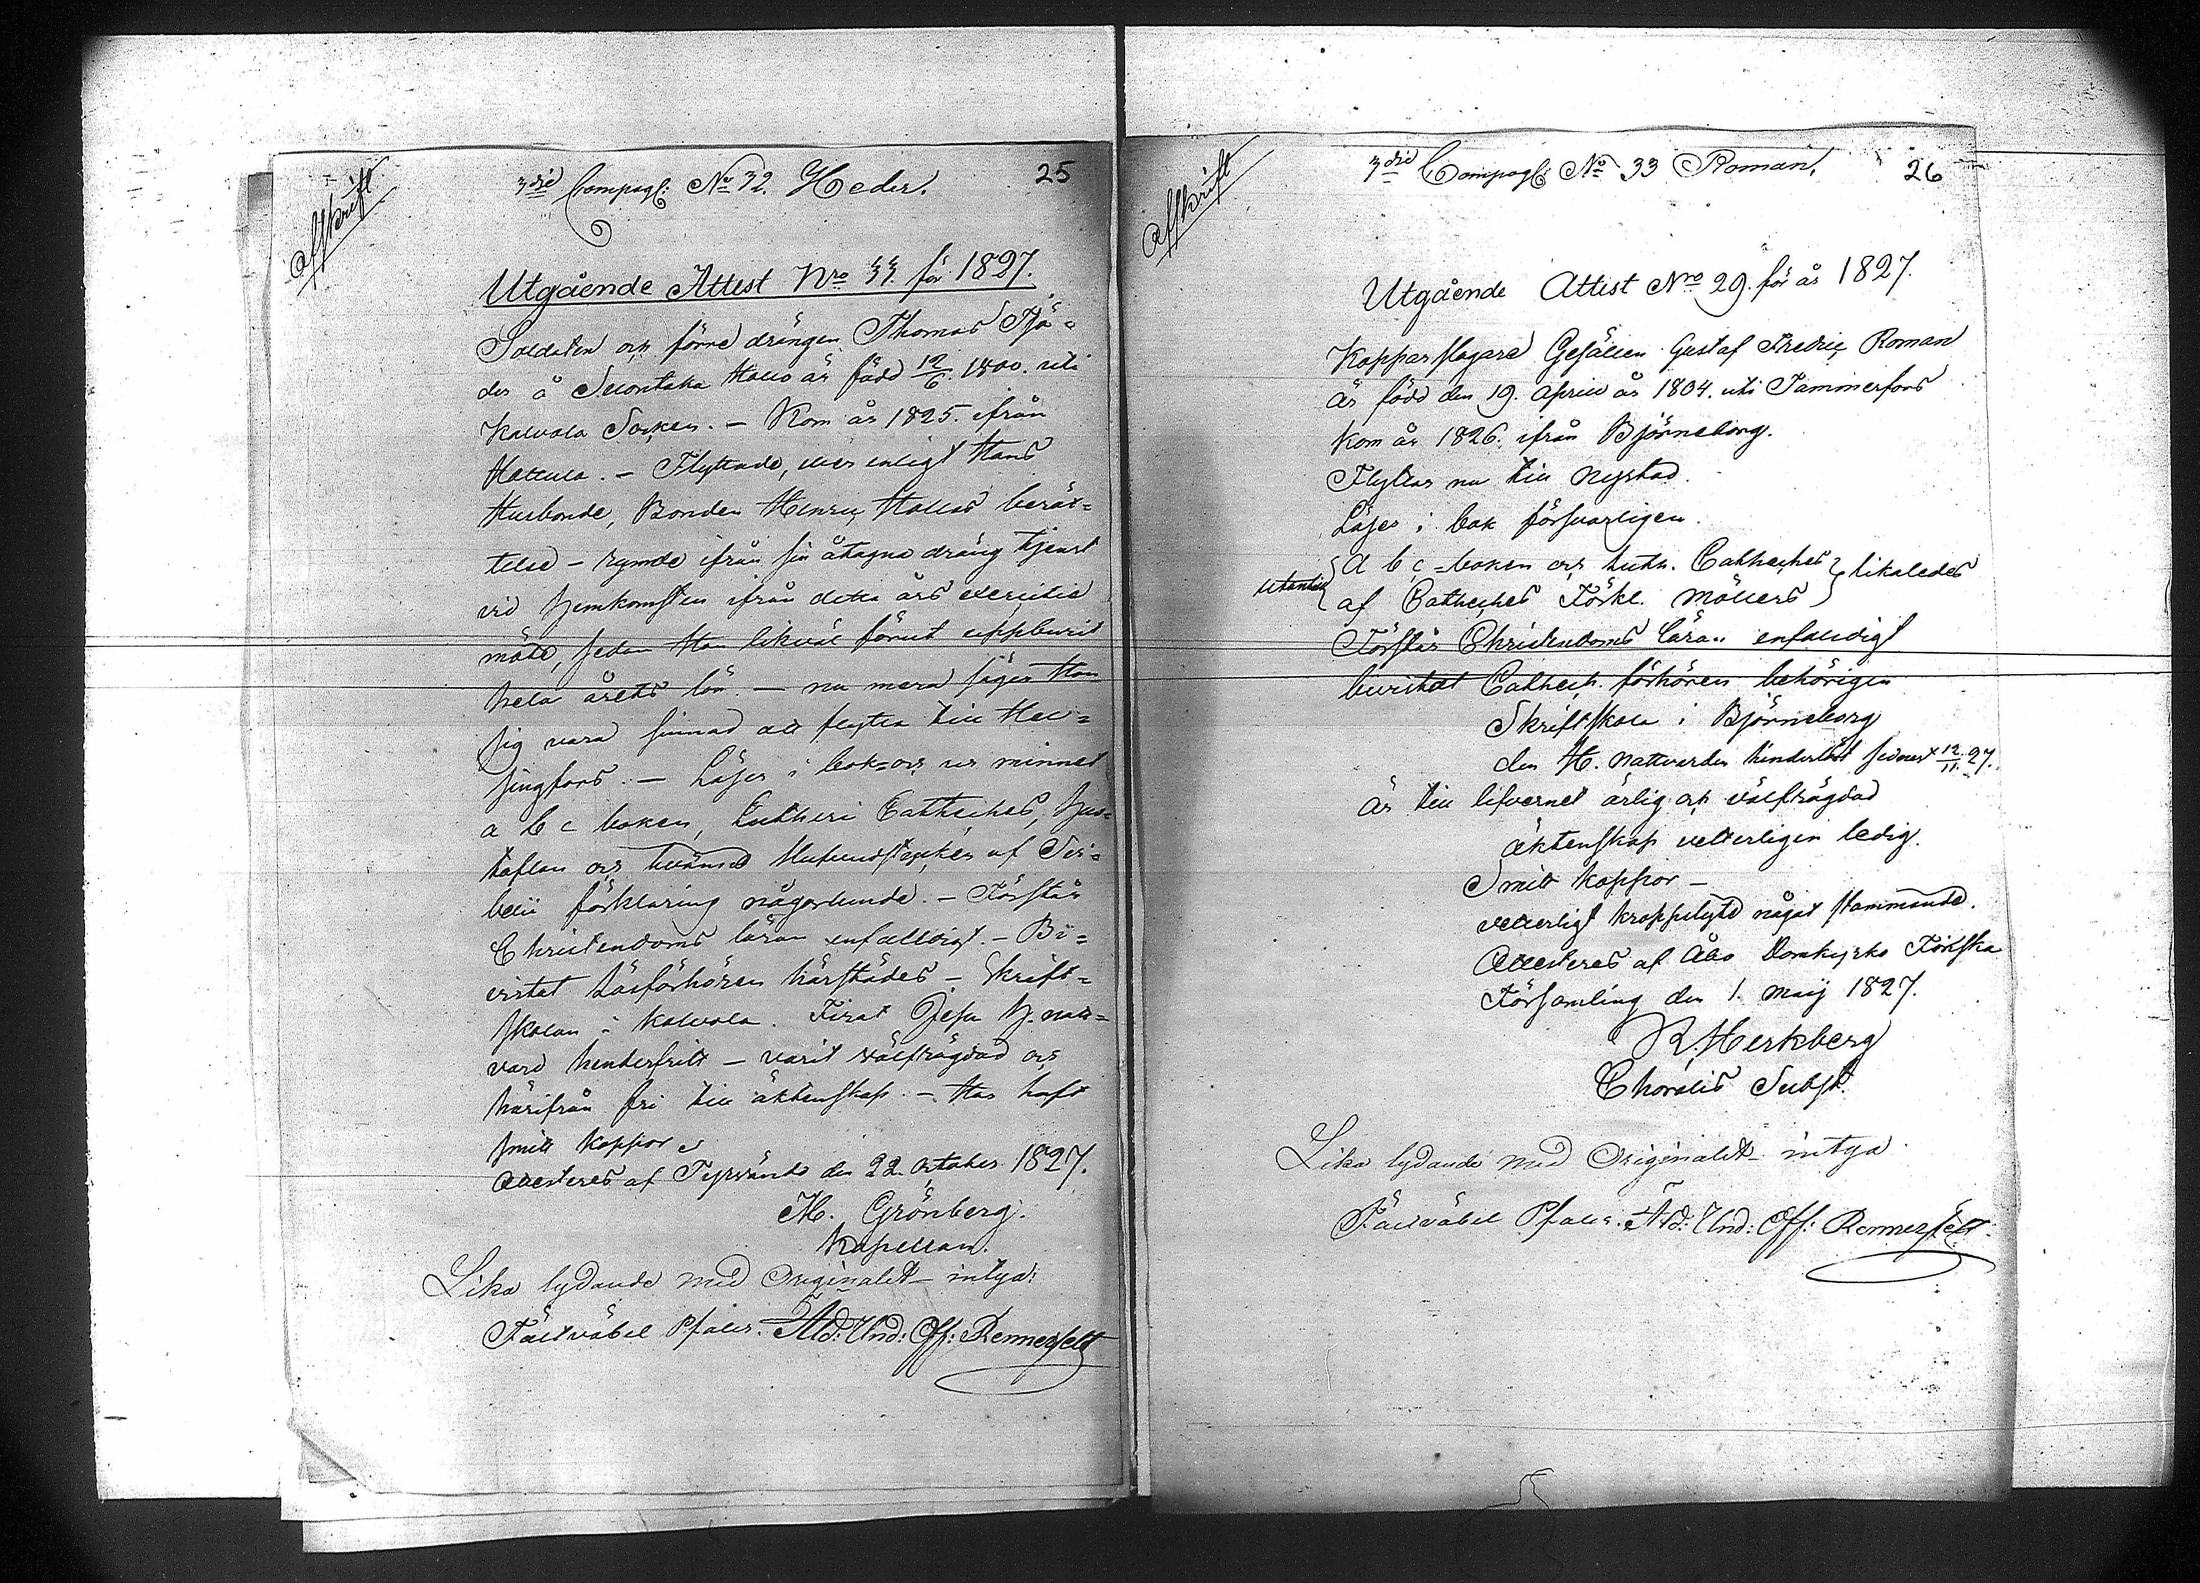 Afskrift
3die Compagl: No 32. Heder.
25
Utgående Attest Nro 33. för 1827.
Soldaten och förre drängen Thomas
der å Suontaka Hollo är född 12/6. 1800. uti
Kalvola Socken. – Kom år 1825. ifrån
Hattula. – Flyttade, eller enligt Hans
Husbonde, Bonden Henric Hollos berät=
telse – rymde ifrån sin åtagna dräng tjenst
vid hemkomsten ifrån detta års exercitie
möte, sedan Han likväl förut uppburit
hela årets lön. – nu mera säger Han
sig vara sinnad att flytta till Hel=
singfors. – Läser i bok och ur minnet
a b c boken, Lutheri Catheches, Hus=
taflan och tvänne Hufvudstycken af Sve=
belii förklaring någorlunda. – Förstår
Christendoms läran enfalldigt. – Bi=
vistat Läsförhören härstädes – Skrift=
skolan i Kalvola. Firat Jesu H. natt=
vard hinderfritt – varit välfrägdad och
härifrån fri till äktenskap. – Har haft
smitt koppor
Attesteras af Tyrväntö den 22. october 1827.
H. Grönberg.
Kapellan.
Lika lydande med Originalet intyga:
Fältväbel Pfaler. Äld: Und: Off: Rennerfelt
Afskrift
3die Compagl: No 33 Roman,
26
Utgående Attest Nro 29. för år 1827.
Kopparslagare Gesällen Gustaf Fredric Roman
är född den 19. April år 1804. uti Tammerfors
Kom år 1826. ifrån Björneborg.
Flyttar nu till Nystad.
Läser i bok försvarligen.
utantill { A b c =boken och Luth. Catheches } likaledes
af Catheches Förkl. Möllers
Förstår Christendoms läran enfalldigt
bevistat Cathech. förhören behörigen
Skriftskola i Björneborg
den H. Nattvarden hinderlöst sednast 12/11. 27.
är till lifvernet ärlig och välfrägdad
äktenskap vetterligen ledig.
Smitt koppor –
vetterligt kroppslyte något stammande.
Attesteras af Åbo Domkyrko Finska
Församling den 1. Maij 1827.
R. Herkberg
Choralis Subst.
Lika lydande med Originalet intyga
Fältväbel Pfaler. Äld: Und: Off: Rennerfelt.